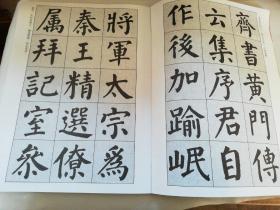 齊書黃門傳
云集序君自
作後加踰岷
將軍太宗爲
秦王精選僚
属拜記室叅